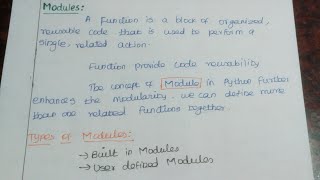 Modules:
A Function is a block of organized,
reusable code that is used to perform a
single related action.
Function provide code reusability
The concept of Module in Python further
enhances the modularity. we can define more
than one related functions together.
Types of Modules:
→ Built in Modules
→ User defined Modules